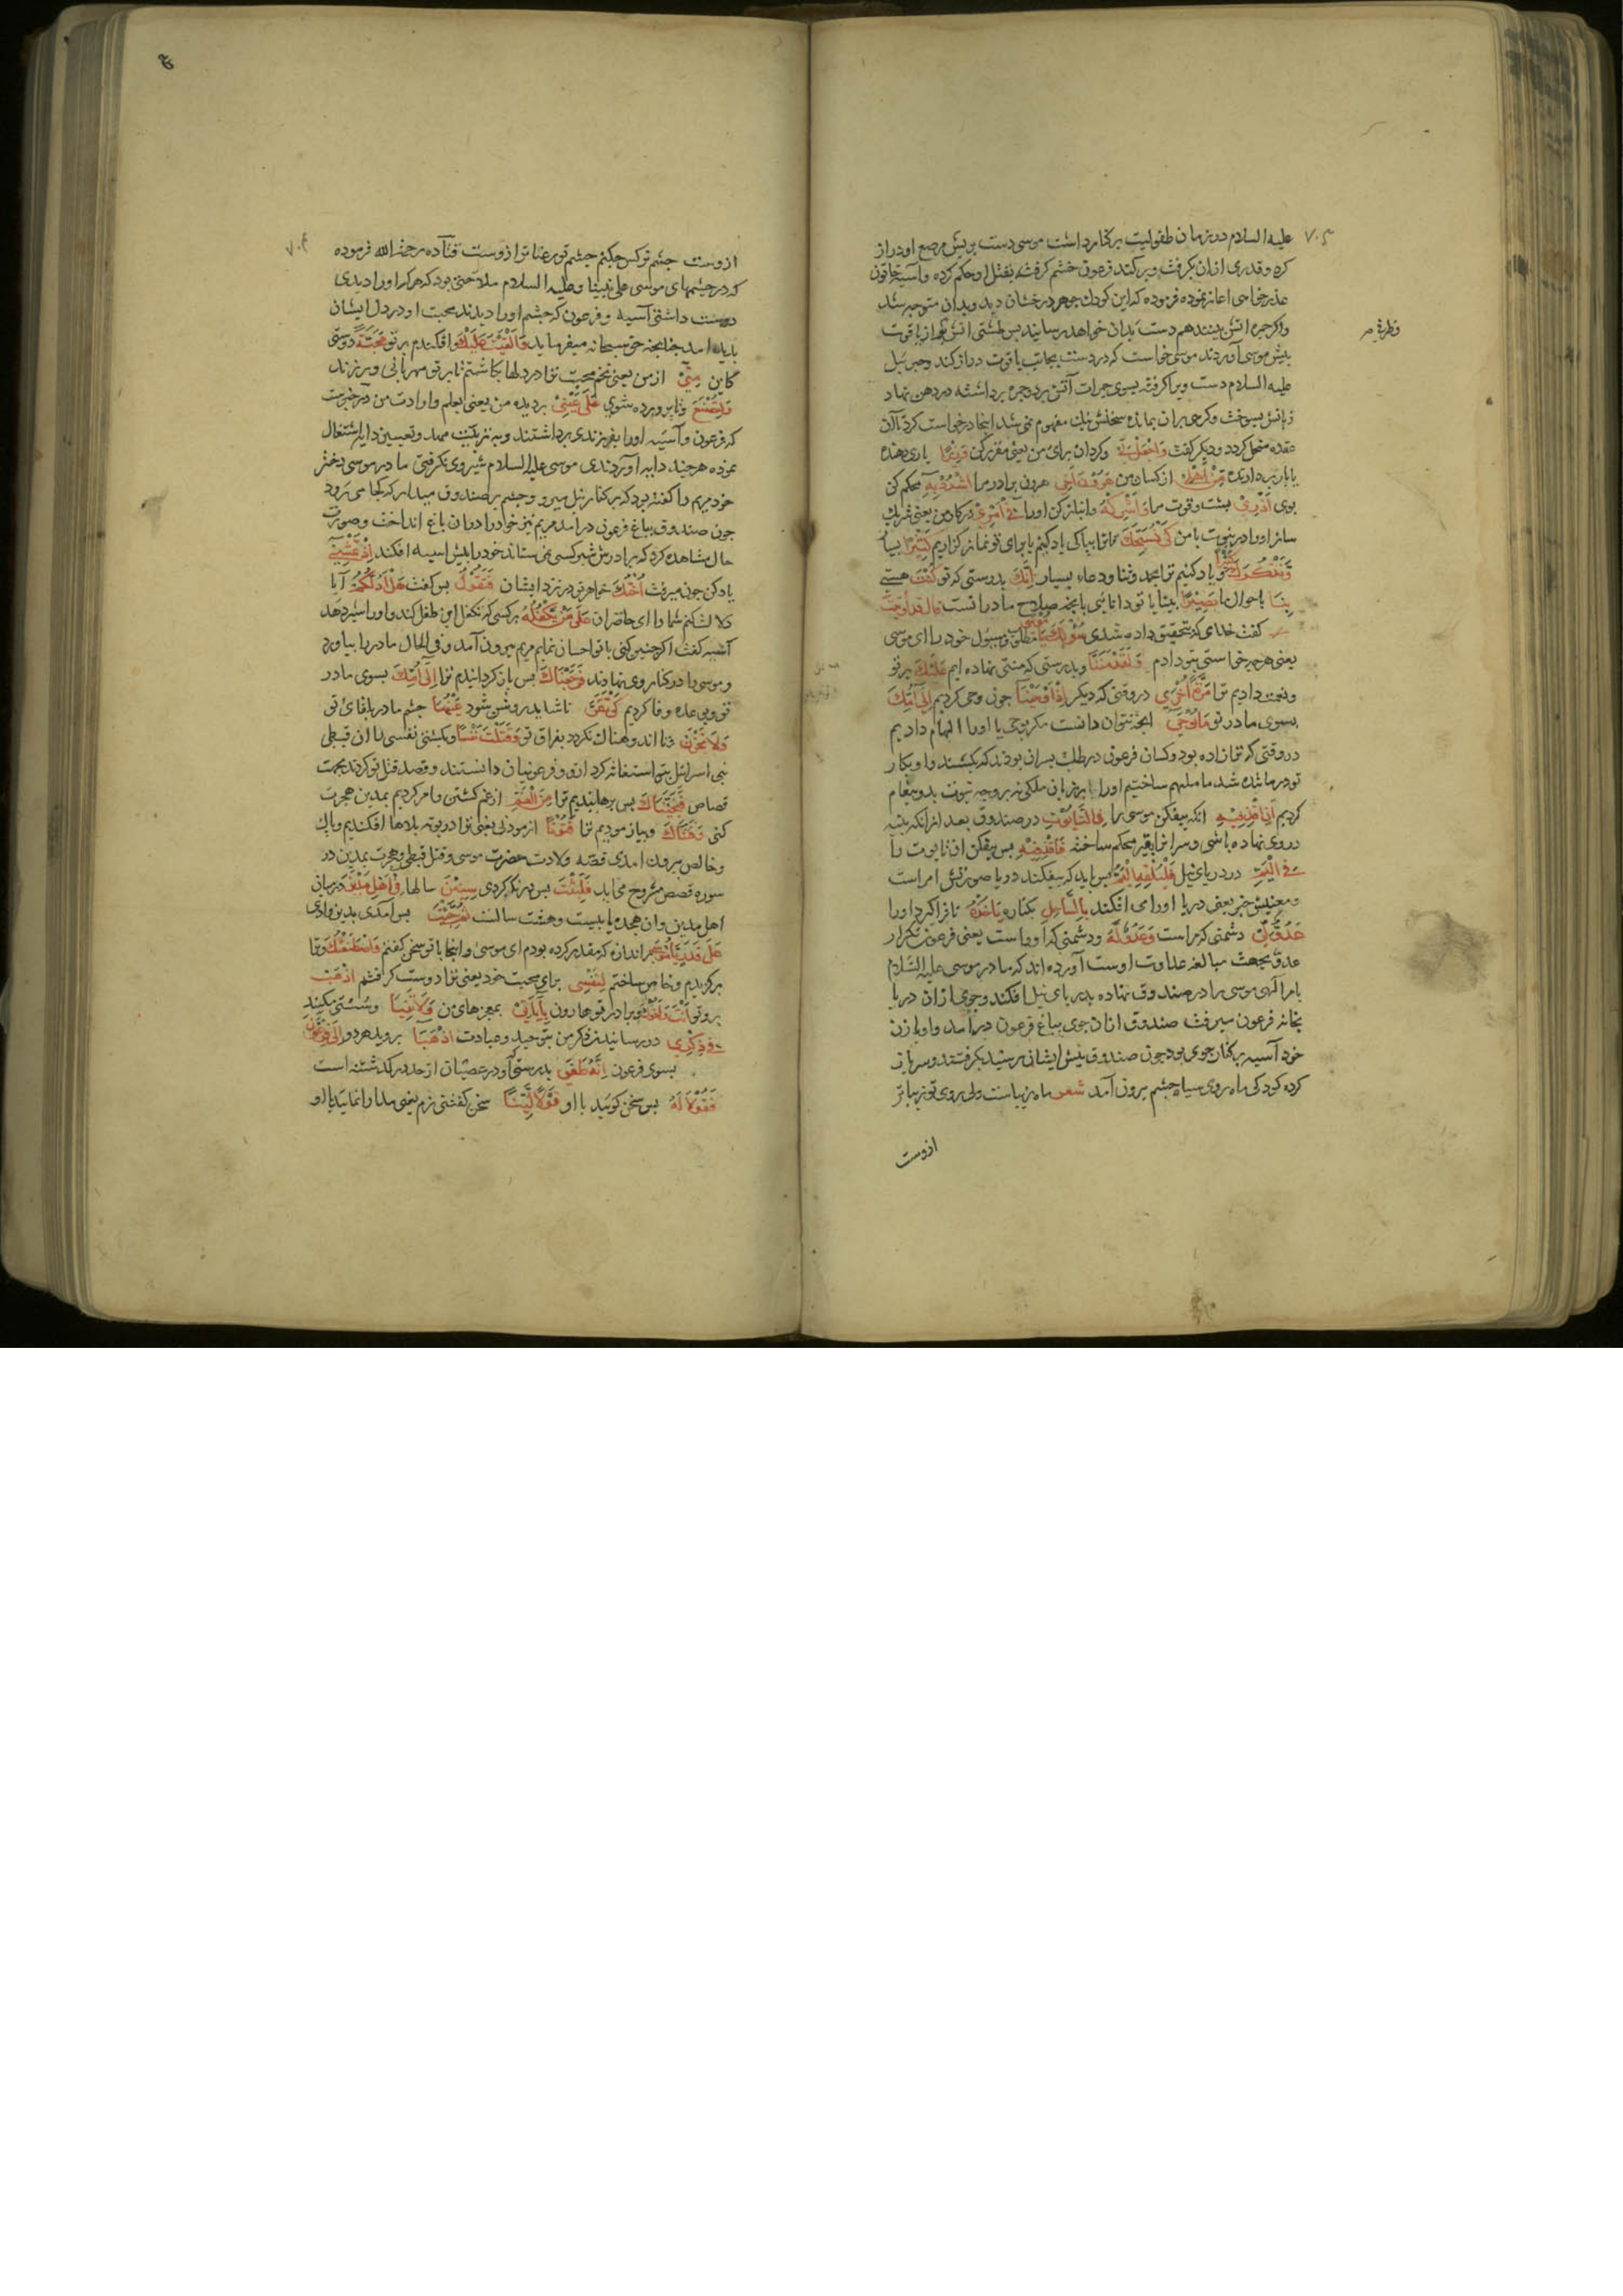 علیه السلام در زمان طفولیت برکنار داشت موسی دست بریش مرصع او دراز
کرد و قدری ازان بگرفت و برکند فرعون خشم گرفته بقتل او حکم کرده و آسیه خاتون
عذر خواهی آغاز نموده فرموده که این کودک جوهر درخشان دید وبدان متوجه شد
واکر جمره اتش بیند هم دست بدان خواهد رسانید بس طشتی اتش و از یاقوت
بیش موسی آوردند موسی خواست که دردست بجانب یاقوت دراز کند وجبرئیل
علیه السلام دست ویرا کرفته بسوی جمرات آتش برد وجمره برداشته در دهن نهاد
زبانش بسوخت وکرهی بران بمانده سخنش نیک مفهوم نمی شد اینجا درخواست کرد تا آن
عقده منحل کردد ودیکر کفت وَاجْعَلْ لِي وکردان برای من یعنی مقرر کن وَزِيرًا یاری دهنده
یا بار بردارنده مِنْ أَهْلِي از کسان من هَرُونَ أَخِي هرون برادر مرا اشْدُدْ بِهِ محکم کن
بوی أَزْرِي بشت وقوت مرا وَأَشْرِكْهُ وانباز کن اورا فِي أَمْرِي در کار من یعنی شریک
ساز اورا در نبوت با من كَيْ نُسَبِّحَكَ تا ترا بپاکی یاد کنیم یا برای تو نماز کزاریم كَثِيرًا بسیار
وَنَذْكُرَكَ كَثِيرًا ویاد کنیم ترا بحمد وثنا ودعاء بسیار إِنَّكَ بدرستی که تو كُنْتَ هستی
بِنَا باحوال ما بَصِيرًا بینا یا تو دانائی بانجه صلاح ما درانست قَالَ قَدْ أُوتِيتَ
کفت خدای که بتحقیق داده شدی سُؤْلَكَ يَا مُوسَى مطلوب ومسؤل خود را ای موسی
یعنی هرچه خواستی بتو دادم وَلَقَدْ مَنَنَّا وبدرستی که منتی نهاده ایم عَلَيْكَ بر تو
ونعمت دادیم ترا مَرَّةً أُخْرَى در وقتی که دیکر إِذْ أَوْحَيْنَا چون وحی کردیم إِلَى أُمِّكَ
بسوی مادر تو مَا يُوحَى انجه نتوان دانست مکر بوحی یا اورا الهام دادیم
در وقتی که ترا زاده بود وکسان فرعون در طلب بسران بودند که بکشند واو بکار
تو درمانده شد ما ملهم ساختیم اورا یا بر زبان ملکی نه بر وجه نبوت بدو بیغام
کردیم أَنِ اقْذِفِيهِ انکه بیفکن موسی را فِي التَّابُوتِ در صندوق بعد ازانکه بنبه
در وی نهاده باشی وسر انرا بقیر محکم ساخته فَاقْذِفِيهِ بس بیفکن ان تابوت را
فِي الْيَمِّ در دریای نیل فَلْيُلْقِهِ الْيَمُّ بس باید که بیفکند دریا صورتش امر است
ومعنیش خبر یعنی دریا اورا می افکند بِالسَّاحِلِ بکناره يَأْخُذْهُ تا فراکیرد اورا
عَدُوٌّ لِي دشمنی که مراست وَعَدُوٌّ لَهُ ودشمنی که اوراست یعنی فرعون تکرار
عدو بجهت مبالغه عداوت اوست آورده اند که مادر موسی علیه السلام
بامر الهی موسی را در صندوق نهاده بدریای نیل افکند وجوی ازان دریا
بخانه فرعون میرفت صندوق ازان جوی بباغ فرعون درآمد واو با زن
خود آسیه بر کنار جوی بود چون صندوق بیش ایشان رسید بکرفتند وسر باز
کرده کودکی ماه روی سیاه چشم بیرون آمد شعر ماه زیباست ولی روی تو زیباتر
ازوست
۷۰۳
ازوست چشم نرکس چکنم چشم تو رعنا تر ازوست قتاده رحمه الله فرموده
که در چشمهای موسی علی نبینا وعلیه السلام ملاحتی بود که هرکه اورا دیدی
دوست داشتی آسیه وفرعون که چشم اورا دیدند محبت او در دل ایشان
بدید امد چنانچه حق سبحانه میفرماید وَأَلْقَيْتُ عَلَيْكَ وافکندم بر تو مَحَبَّةً دوستی
کاین مِنِّي از من یعنی تخم محبت ترا در دلها بکاشتم تا بر تو مهربانی ورزند
وَلِتُصْنَعَ وتا برورده شوی عَلَى عَيْنِي بر دیده من یعنی بعلم وارادت من
که فرعون وآسیه اورا بفرزندی برداشتند وبه تربیت مهد وتعیین دایه اشتغال
نموده هرچند دایه آوردندی موسی علیه السلام شیر وی نکرفتی مادر موسی دختر
خود مریم را کفته بود که بر کنار نیل میرو وچشم بر صندوق میدار که کجا می رود
چون صندوق بباغ فرعون درامد مریم نیز خود را دران باغ انداخت وصورت
حال مشاهده کرد که برادرش شیر کسی نمی ستاند خود را بیش اسیه افکند إِذْ تَمْشِي
یاد کن چون میرفت أُخْتُكَ خواهر تو در نزد ایشان فَتَقُولُ بس کفت هَلْ أَدُلُّكُمْ آیا
دلالت کنم شما را ای حاضران عَلَى مَنْ يَكْفُلُهُ بر کسی که تکفل این طفل کند واورا شیر دهد
آسیه کفت اکر چنین کنی با تو احسان نمایم مریم بیرون آمد وفی الحال مادر را بیاورد
وموسی را در کنار وی نهادند فَرَجَعْنَاكَ بس باز کردانیدیم ترا إِلَى أُمِّكَ بسوی مادر
تو وبوعده وفا کردیم كَيْ تَقَرَّ تا شاید روشن شود عَيْنُهَا چشم مادر بلقای تو
وَلَا تَحْزَنَ وتا اندوهناک نکردد بفراق تو وَقَتَلْتَ نَفْسًا وبکشتی نفسی را ان قبطی
بنی اسرائیل بتو استغاثه کرد ازو وفرعونیان دانستند وقصد قتل تو کردند بجهت
قصاص فَنَجَّيْنَاكَ بس برهانیدیم ترا مِنَ الْغَمِّ از غم کشتن وامر کردیم بمدین هجرت
کنی وَفَتَنَّاكَ وبیازمودیم ترا فُتُونًا ازمودنی یعنی ترا در بوته بلاها افکندیم وپاک
وخالص بیرون امدی قصه ولادت حضرت موسی وقتل قبطی وهجرت بمدین در
سوره قصص مشروح می اید فَلَبِثْتَ بس درنک کردی سِنِينَ سالها فِي أَهْلِ مَدْيَنَ در میان
اهل مدین وان هجده یا بیست وهشت سالست ثُمَّ جِئْتَ بس آمدی بدین وادی
عَلَى قَدَرٍ يَا مُوسَى بر اندازه که مقدر کرده بودم ای موسی واینجا با تو سخن کفتم وَاصْطَنَعْتُكَ وترا
برکزیدم وخاص ساختم لِنَفْسِي برای محبت خود یعنی ترا دوست کرفتم اذْهَبْ
برو تو أَنْتَ وَأَخُوكَ وبرادر تو هارون بِآيَاتِي بمعجزهای من وَلَا تَنِيَا وسستی مکنید
فِي ذِكْرِي در رسانیدن ذکر من بتوحید وعبادت اذْهَبَا بروید هر دو إِلَى فِرْعَوْنَ
بسوی فرعون إِنَّهُ طَغَى بدرستی که او در عصیان از حد در کذشته است
فَقُولَا لَهُ بس سخن کویید با او قَوْلًا لَيِّنًا سخن کفتنی نرم یعنی مدارا نمایید با او